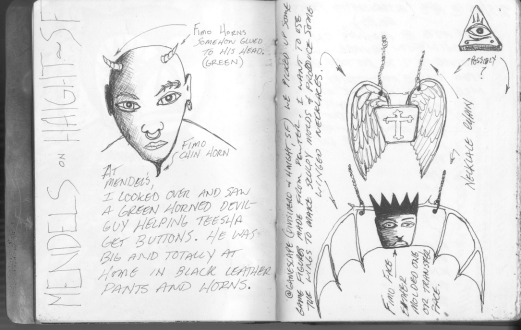 MENDELS ON HAIGHT ~ SF
FIMO HORNS
SOMEHOW GLUED
TO HIS HEAD.
(GREEN)
FIMO
CHIN HORN
AT
MENDELS,
I LOOKED OVER AND SAW
A GREEN HORNED DEVIL-
GUY HELPING TEESHA
GET BUTTONS. HE WAS
BIG AND TOTALLY AT
HOME IN BLACK LEATHER
PANTS AND HORNS.
@GAMESCAPE (DIVISADERO & HAIGHT, SF) WE PICKED UP SOME
GAME FIGURES MADE FROM PEWTER. I WANT TO USE
THE WINGS TO MAKE SCULPY MOLDS & PRODUCE SOME
WINGED NECKLACES.
POSSIBLY
?
NECKLACE CHAIN
FIMO FACE
EITHER
MOLDED ONE
OR TRANSFER
FACE.